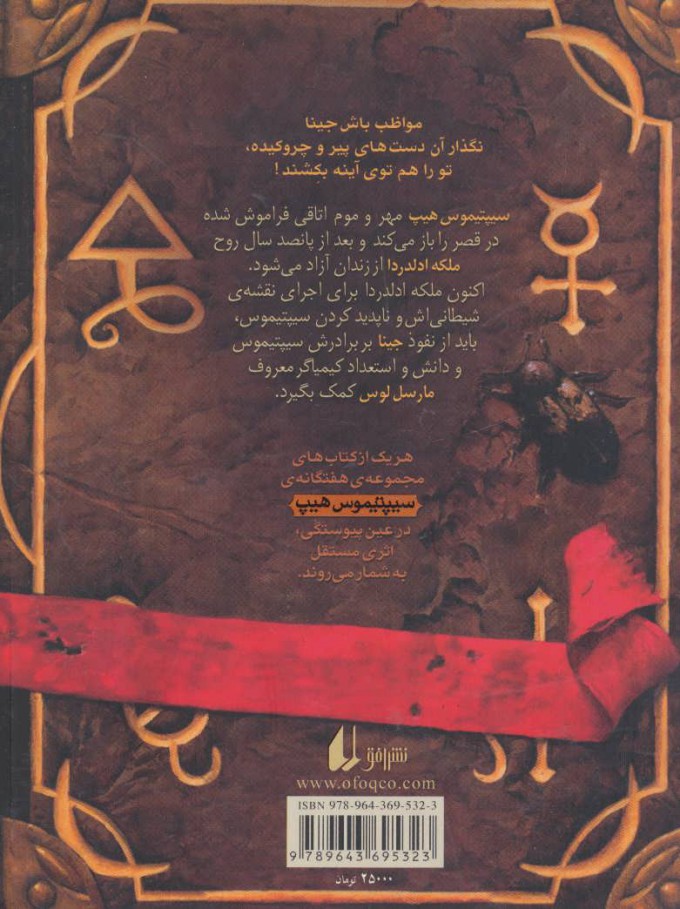 مواظب باش جینا
نگذار آن دست‌های پیر و چروکیده،
تو را هم توی آینه بکِشند!
سیپتیموس هیپ مهر و موم اتاقی فراموش شده
در قصر را باز می‌کند و بعد از پانصد سال روح
ملکه ادلدردا از زندان آزاد می‌شود.
اکنون ملکه ادلدردا برای اجرای نقشه‌ی
شیطانی‌اش و ناپدید کردن سیپتیموس،
باید از نفوذ جینا بر برادرش سیپتیموس
و دانش و استعداد کیمیاگر معروف
مارسل لوس کمک بگیرد.
هر یک از کتاب‌های
مجموعه‌ی هفتگانه‌ی
سیپتیموس هیپ
در عین پیوستگی،
اثری مستقل
به شمار می‌روند.
نشر افق
www.ofoqco.com
ISBN 978-964-369-532-3
9 789643 695323
۲۵۰۰۰ تومان